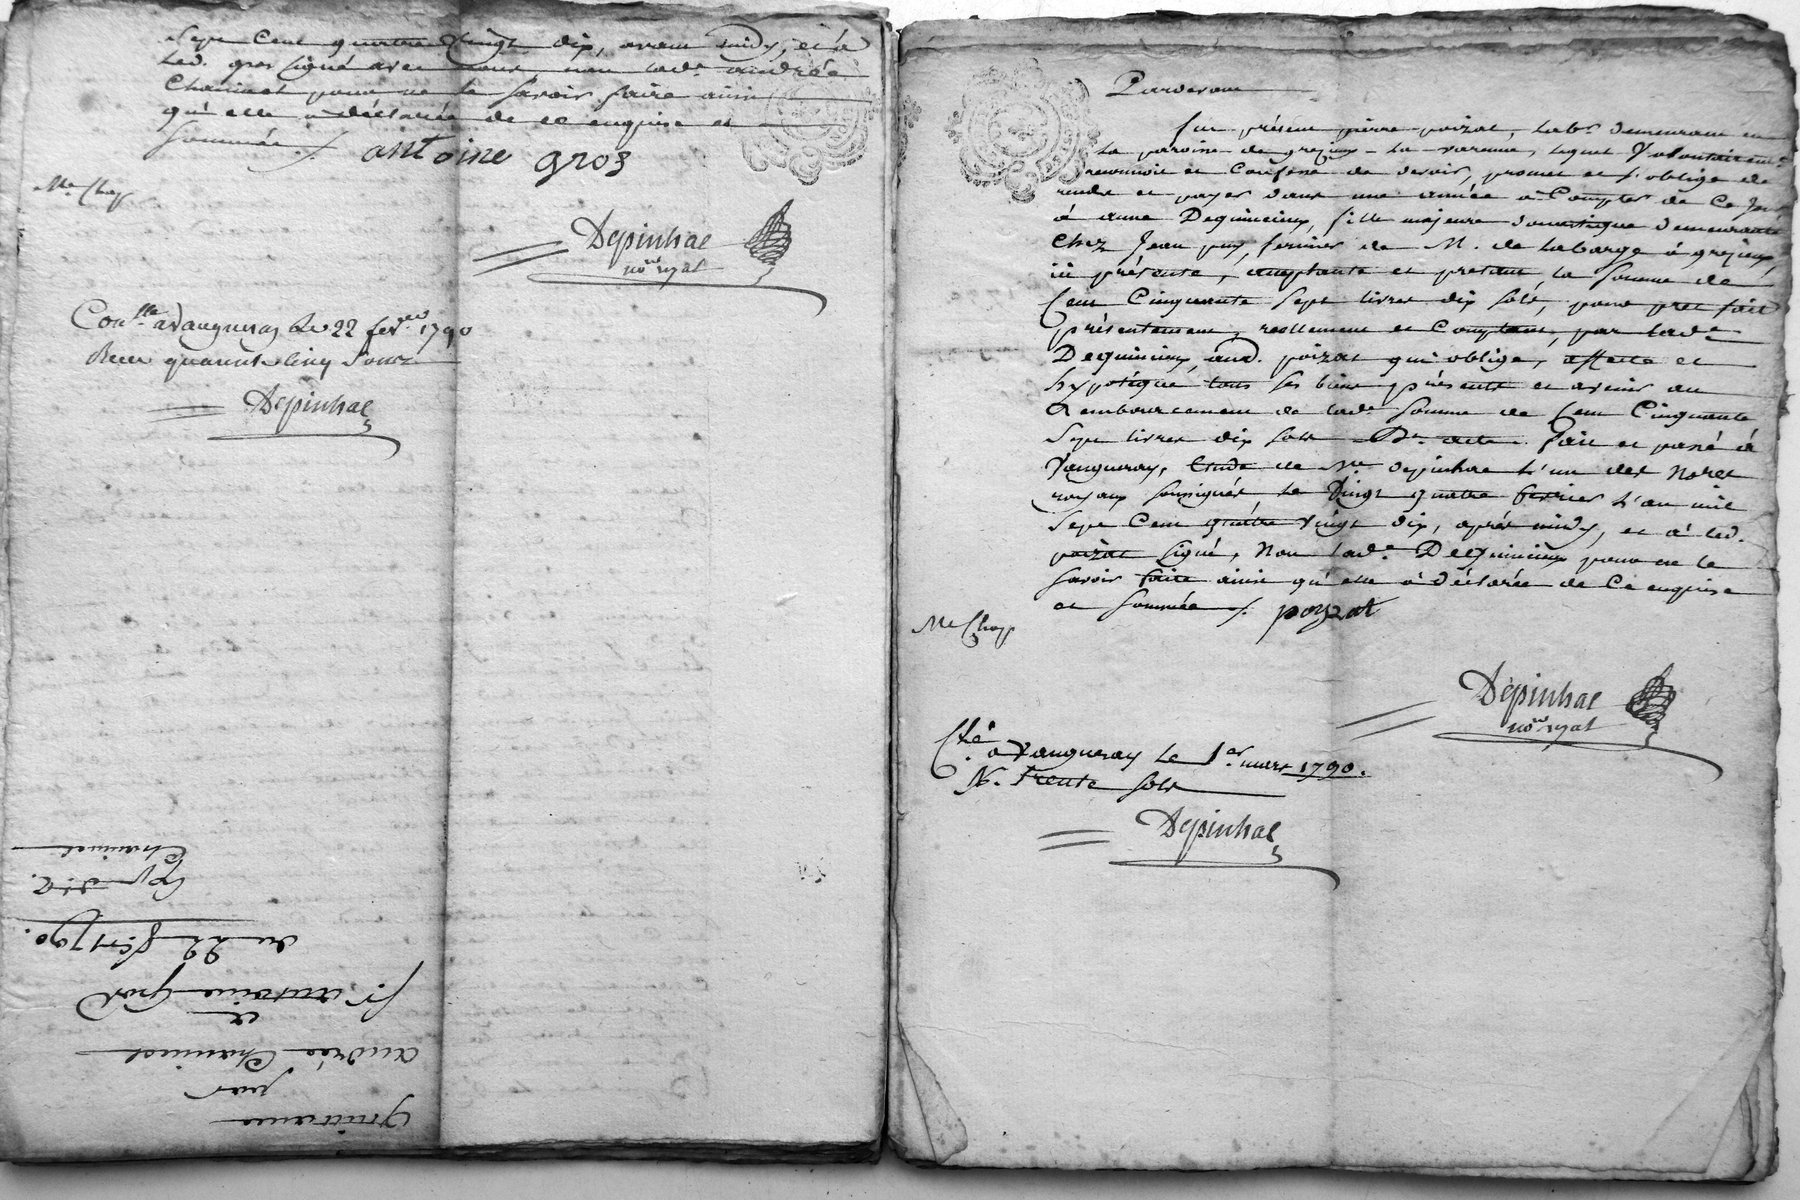 Sept Cent quatre Vingt dix, avant midy, et à
led. gros signé avec nous non lade. andrée
Chavinet pour ne le savoir faire ainsi
qu'elle a déclarée de ce enquise et
sommée ./. antoine gros
Me. Chap
Depinhac
nore. ryal
Conlle. a Vaugneray le 22 fevrier 1790
Recu quarente cinq sous
Depinhac
quittance
par
andrée Chavinet
et
Sr. antoine Gros
du 22 fr. 1790.
Chavinet
Pardevant
fut présent pierre poizat, labr. demeurant en
la paroisse de grezieu la varenne, lequel Volontairemt.
reconnoit et Confesse de devoir, promet et s'oblige de
rendre et payer dans une année a Compter de Ce jour
à anne Dequincieux, fille majeure domestique demeurante
Chez Jean puy, fermier de M. de Labarge à grezieux,
ici présente, acceptante et pretant, la somme de
Cent Cinquante sept livres dix sols, pour pret fait
présentement, reellement et Comptant, par lade.
Dequincieux, aud. poizat qui oblige, affecte et
hypotéque tous ses biens présents et avenir au
Remboursement de lade. somme de Cent Cinquante
Sept livres dix sols Dt. acte. fait et passé à
Vaugneray, Etude de Me. depinhac L'un des Nores.
royaux soussignés le Vingt quatre fevrier L'an mil
Sept Cent quatre vingt dix, après midy, et à led.
poizat signé, Non lade. Dequincieux pour ne le
savoir faire ainsi qu'elle à déclarée de Ce enquise
et sommée ./. poyzat
Me Chap
Depinhac
nore. ryal
Clé. a Vaugneray le 1er. mars 1790.
R. trente sols
Depinhac